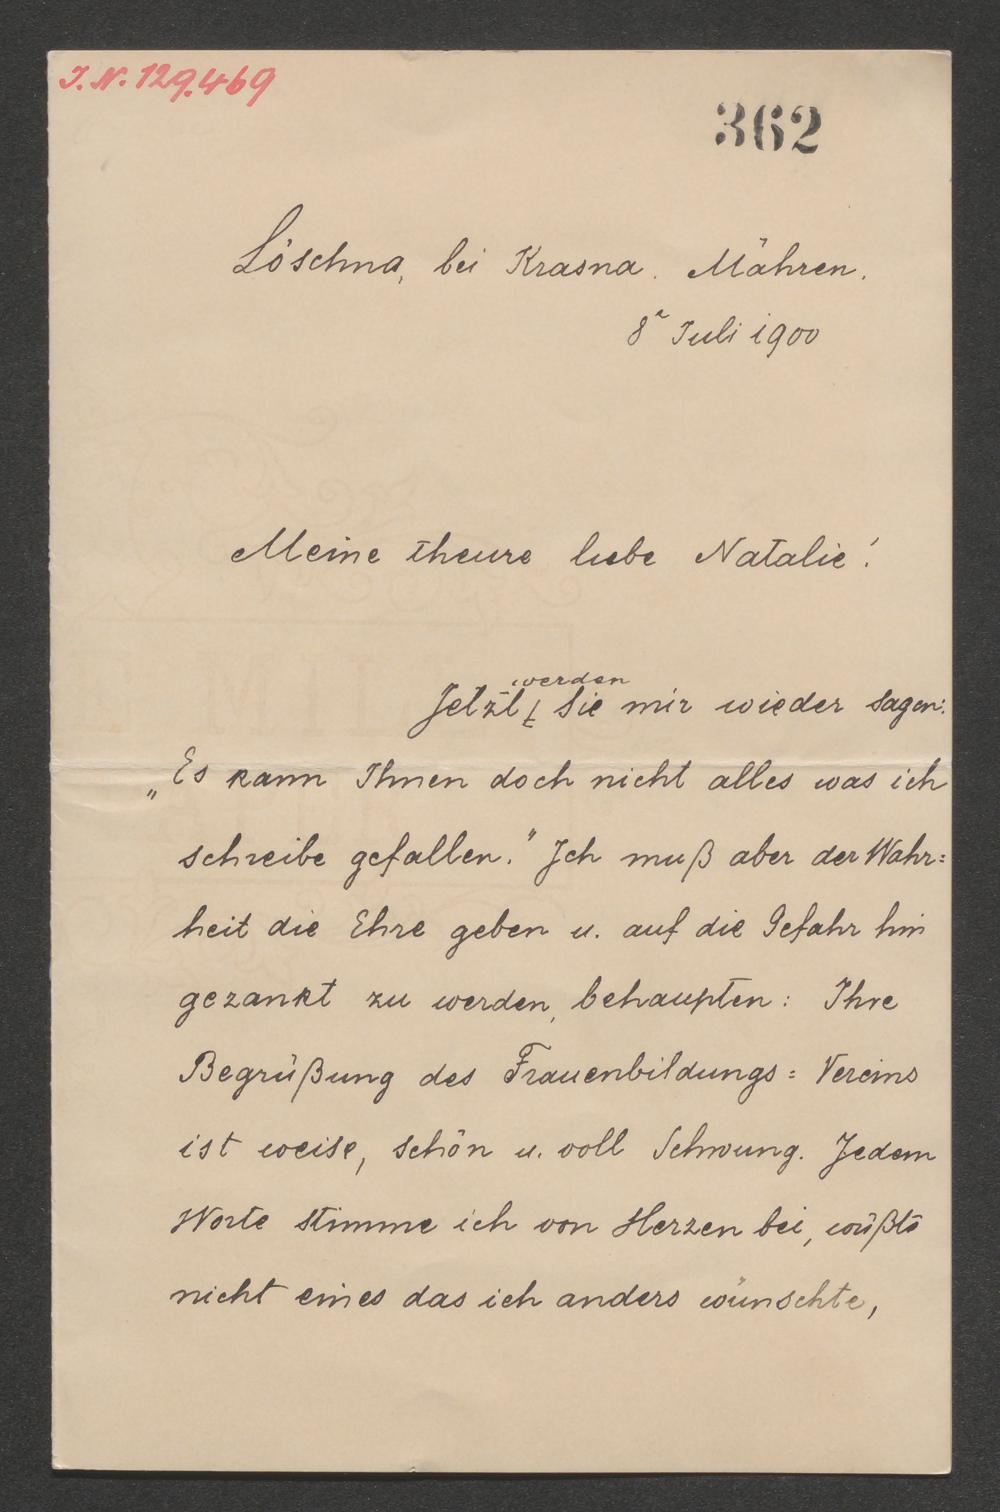 I. N. 129.469
362
Löschna, bei Krasna. Mähren.
8ᵗ Juli 1900
Meine theure liebe Natalie!
werden
Jetzt Sie mir wieder sagen:
„Es kann Ihnen doch nicht alles was ich
schreibe gefallen.“ Ich muß aber der Wahr=
heit die Ehre geben u. auf die Gefahr hin
gezankt zu werden, behaupten: Ihre
Begrüßung des Frauenbildungs=Vereins
ist weise, schön u. voll Schwung. Jedem
Worte stimme ich von Herzen bei, wüßte
nicht eines das ich anders wünschte,